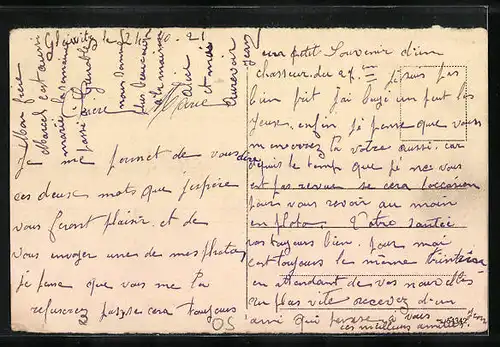 Gleiwitz le 21 10.21
Mon frère
Marcel est aussi
marié la semaine
passé à Grenoble
nous
plus beaucoup
à la maison
Aurevoir
Jean
me permet de vous dire
ces deux mots que j'espère
vous feront plaisir. et de
vous envoyer une de mes photos
je pense que vous me la
refuserez pas, se cera toujours
OS
un petit Souvenir d'un
chasseur du 27 em je suis pas
bien fait j'ai bugé un peut les
yeux. enfin je pense que vous
m'enverrez la votre aussi. car
depuis le temp que je ne vous
est pas revue se cera l'occasion
pour vous revoir au moin
en photo. Votre santée
vas toujours bien. pour moi
c'est toujours le même
en attendant de vos nouvelles
au plus vite recevez d'un
ami qui pense à vous
ces meilleurs amitiés